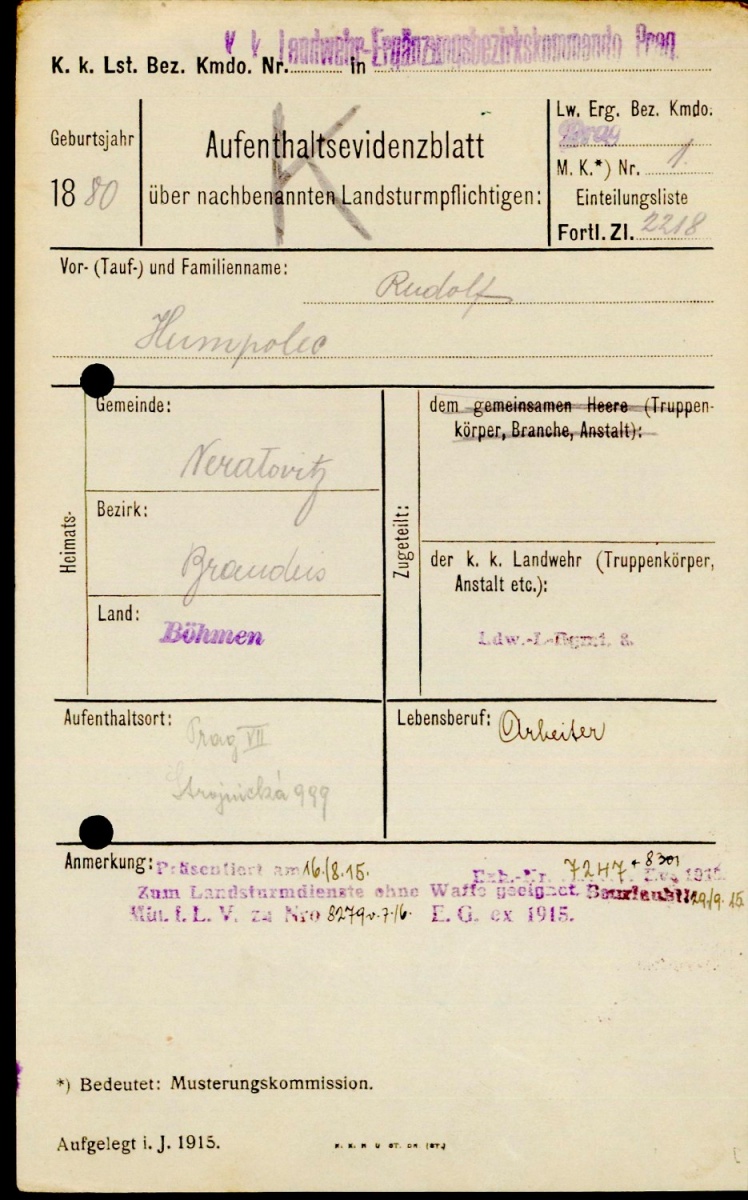 k. k. Landwehr-Ergänzungsbezirkskommando Prag.
K. k. Lst. Bez. Kmdo. Nr. in
Geburtsjahr
1880
Aufenthaltsevidenzblatt
über nachbenannten Landsturmpflichtigen:
K
Lw. Erg. Bez. Kmdo.
Prag
M. K.*) Nr. 1.
Einteilungsliste
Fortl. Zl. 2218
Vor- (Tauf-) und Familienname: Rudolf
Humpolec
Heimats-
Gemeinde:
Neratovitz
Bezirk:
Brandeis
Land:
Böhmen
Zugeteilt:
dem gemeinsamen Heere (Truppen-
körper, Branche, Anstalt):
der k. k. Landwehr (Truppenkörper,
Anstalt etc.):
Ldw.-I.-Rgmt. 8.
Aufenthaltsort:
Prag VII
Strojnická 999
Lebensberuf: Arbeiter
Anmerkung: Präsentiert am 16./8.15. Exh.-Nr. 7247 + 8301 1915.
Zum Landsturmdienste ohne Waffe geeignet. Beurlaubt 29./9. 15.
Min. f. L. V. zu Nro 8279 v. 7/6. E. G. ex 1915.
*) Bedeutet: Musterungskommission.
Aufgelegt i. J. 1915.